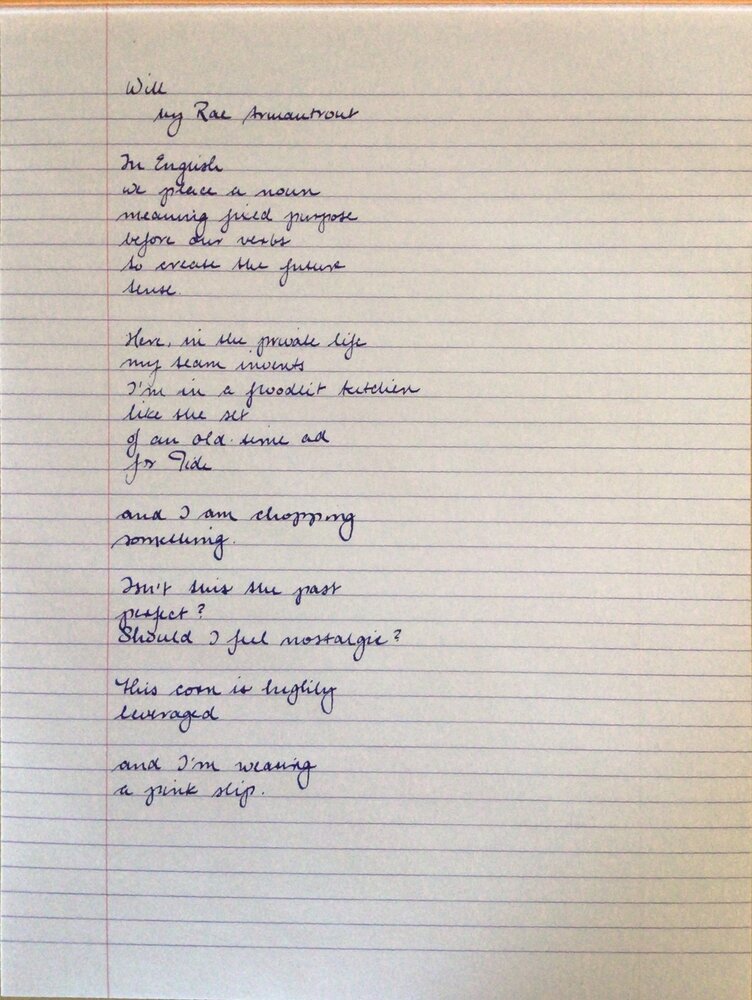 Will
by Rae Armantrout
In English
we place a noun
meaning fixed purpose
before our verbs
to create the future
tense.
Here, in the private life
my team invents
I'm in a floodlit kitchen
like the set
of an old-time ad
for Tide
and I am chopping
something.
Isn't this the past
perfect?
Should I feel nostalgic?
This corn is highly
leveraged
and I'm wearing
a pink slip.